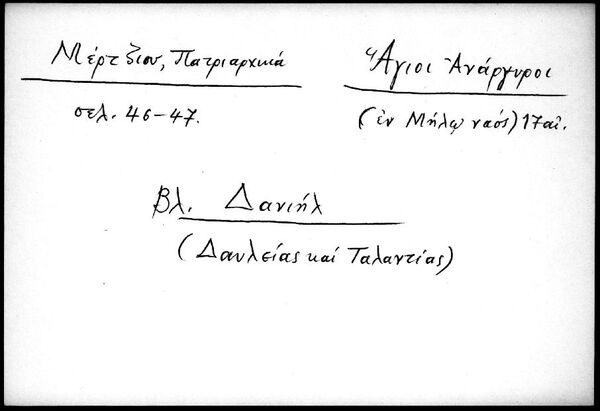 Μέρτζιου, Πατριαρχικά
σελ. 46-47.
Ἅγιοι Ἀνάργυροι
(ἐν Μήλῳ ναός) 17 αἰ.
Βλ. Δανιήλ
(Δαυλείας καί Ταλαντίας)